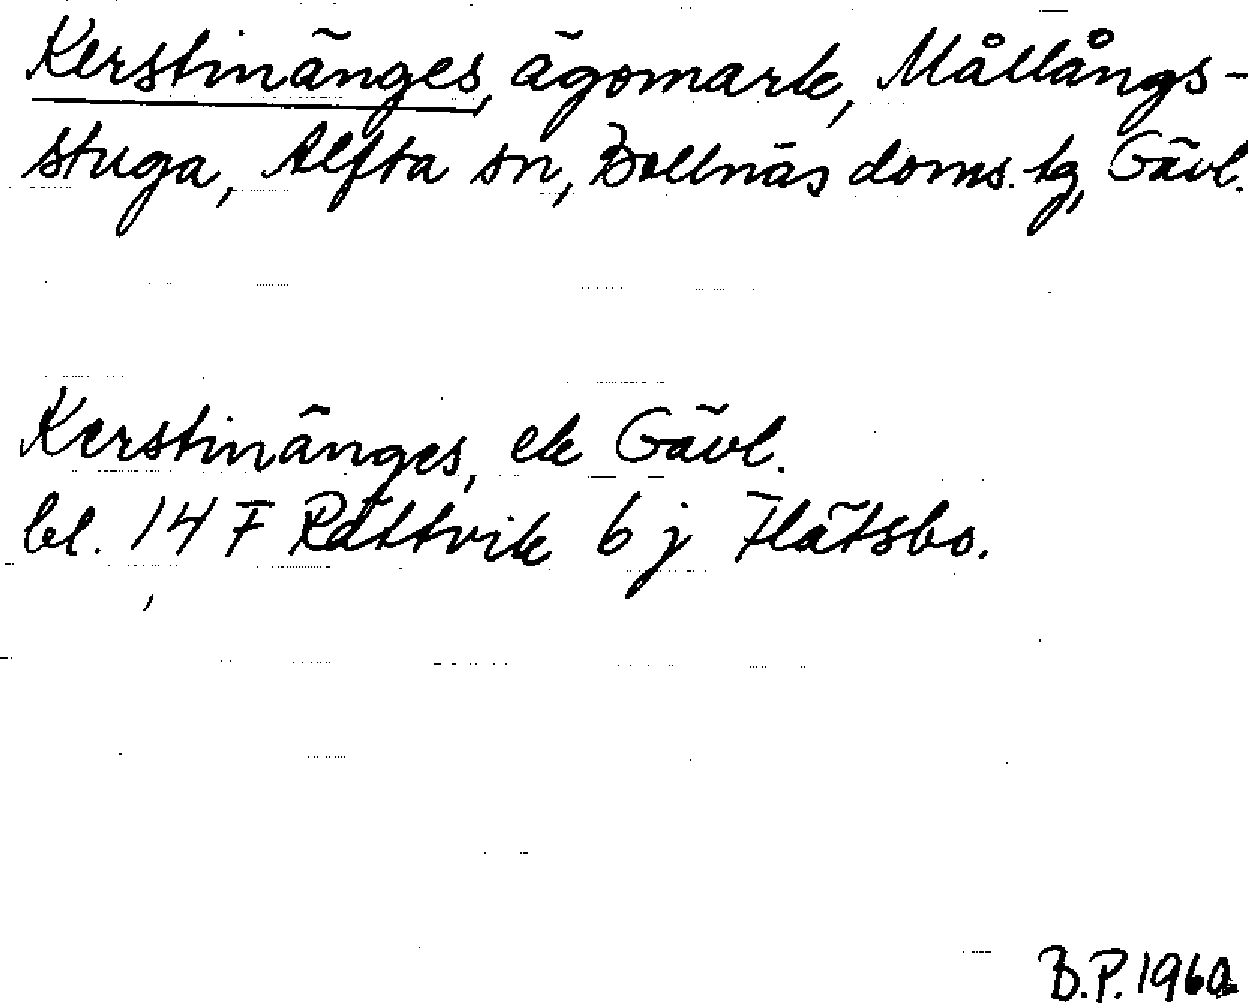 Kerstinänges, ägomark, Mållångs-
stuga, Alfta sn, Bollnäs doms. tg, Gävl.
Kerstinänges, ek Gävl.
bl. 14 F Rättvik 6 j Flätsbo.
B.P. 1960